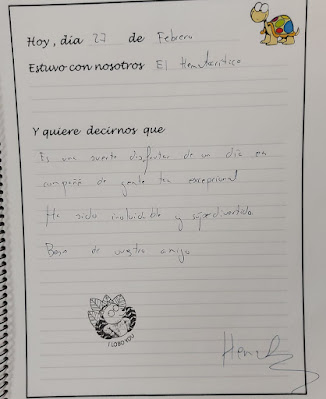 Hoy, día 27 de Febrero
Estuvo con nosotros El Hematocrítico
Y quiere decirnos que
Es una suerte disfrutar de un día en
compañía de gente tan excepcional
Ha sido inolvidable y súperdivertido
Beso de vuestro amigo
I LOBO YOU